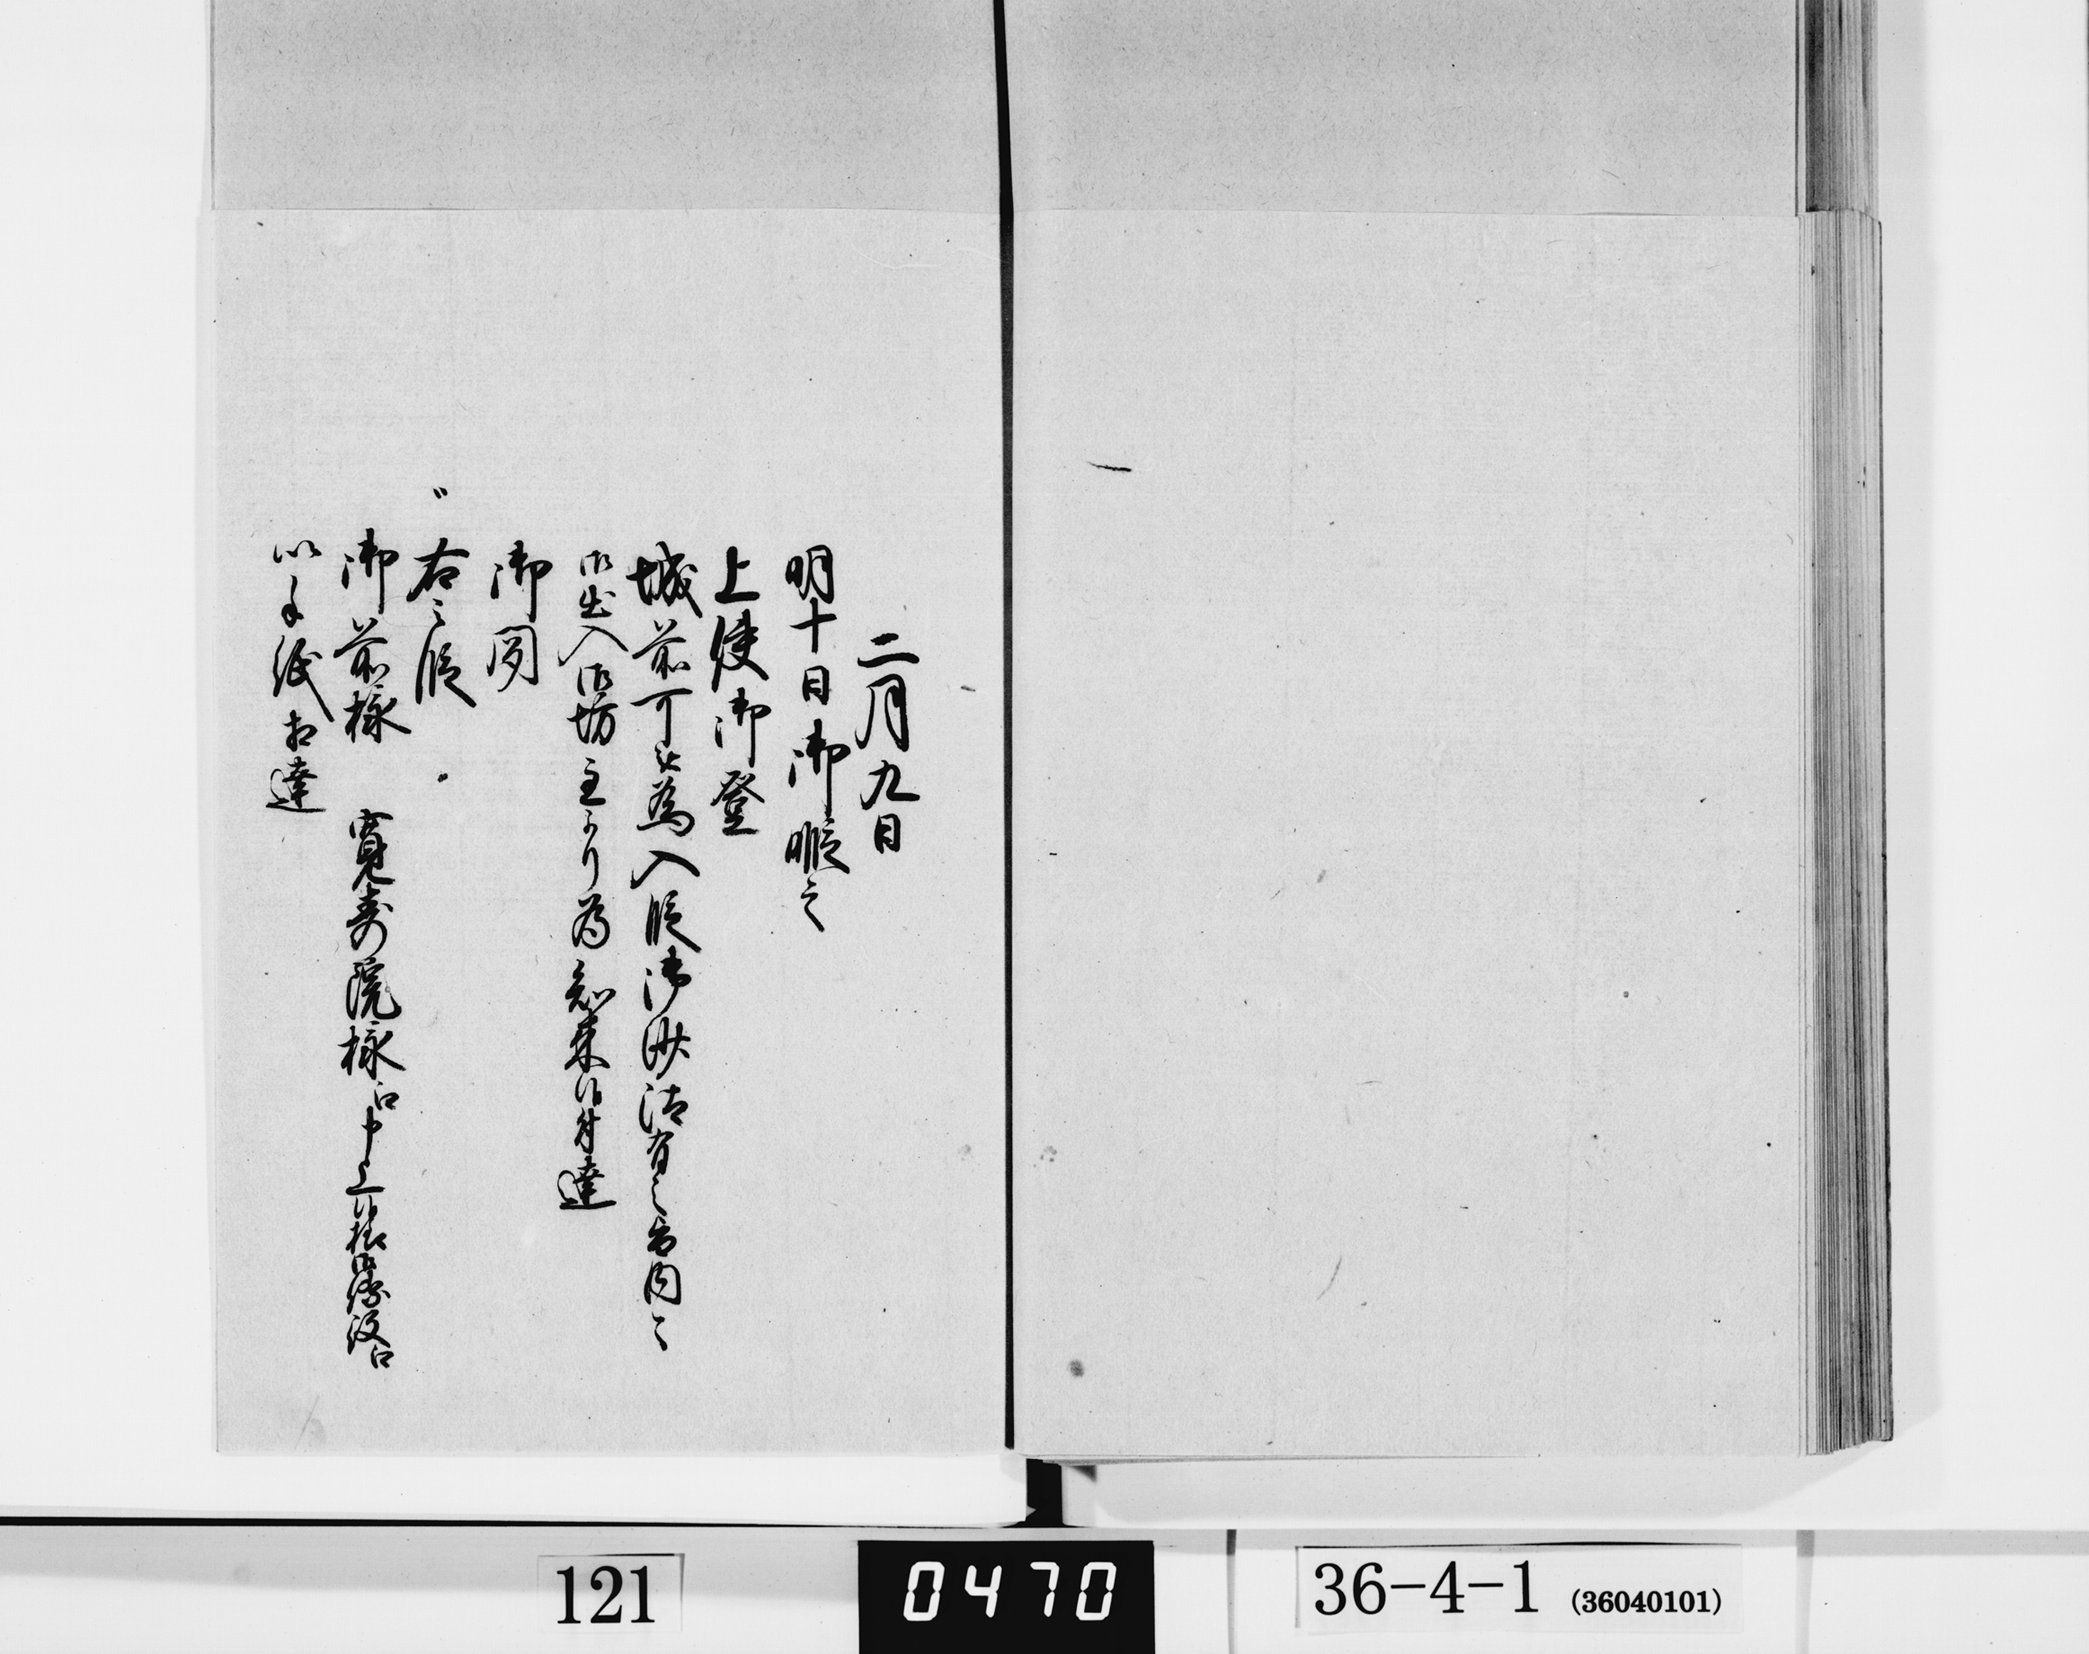 二月九日
明十日御暇之
上使御登
城前可被為入段御沙汰有之旨内々
御出入御坊主ゟ為知来御付達
御聞
〃右之段
御前様　寛寿院様江申上候様御錠口江
以手紙相達
121
0470
36-4-1 (36040101)